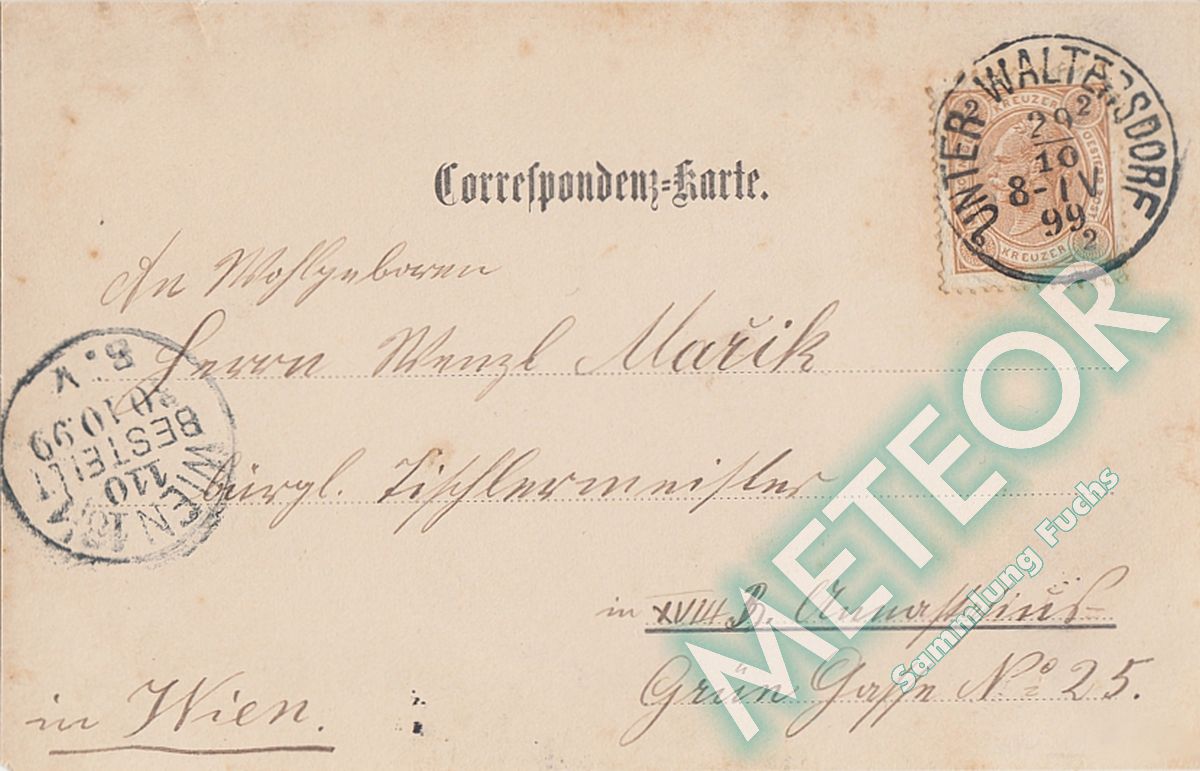 UNTER WALTERSDORF
29
10
8-IV
99
2 KREUZER 2
KREUZER 2
Correspondenz=Karte.
An Wohlgeboren
Herrn Wenzl Mařik
bürgl. Tischlermeister
in XVIII B. Anastasius-
Grün Gasse No 25.
in Wien.
WIEN 18
110
BESTELLT
10.99
8. V
METEOR
Sammlung Fuchs